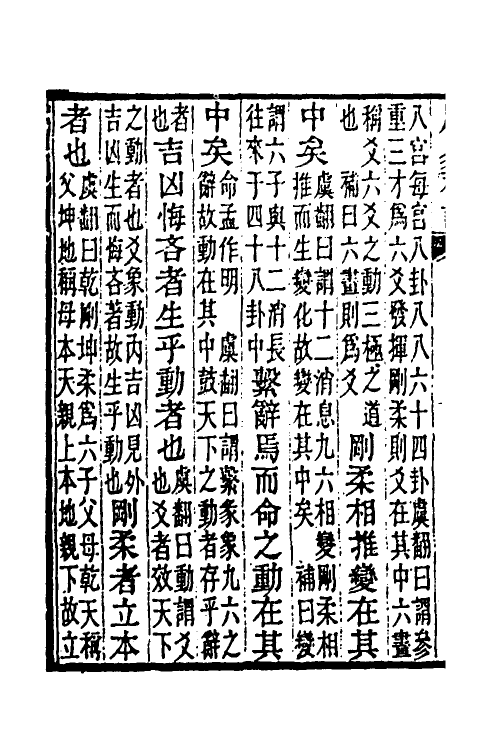 八宮每宮八卦八八六十四卦虞翻曰謂參
重三才爲六爻發揮剛柔則爻在其中六畫
稱爻六爻之動三極之道
也　補曰六畫則爲爻
剛柔相推變在其
中矣
虞翻曰謂十二消息九六相變剛柔相
推而生變化故變在其中矣　補曰變
謂六子與十二消長
往來于四十八卦中
繫辭焉而命之動在其
中矣
命孟作明　虞翻曰謂繫彖象九六之
辭故動在其中鼓天下之動者存乎辭
者
也
吉凶悔吝者生乎動者也
虞翻曰動謂爻
也爻者效天下
之動者也爻象動內吉凶見外
吉凶生而悔吝著故生乎動也
剛柔者立本
者也
虞翻曰乾剛坤柔爲六子父母乾天稱
父坤地稱母本天親上本地親下故立